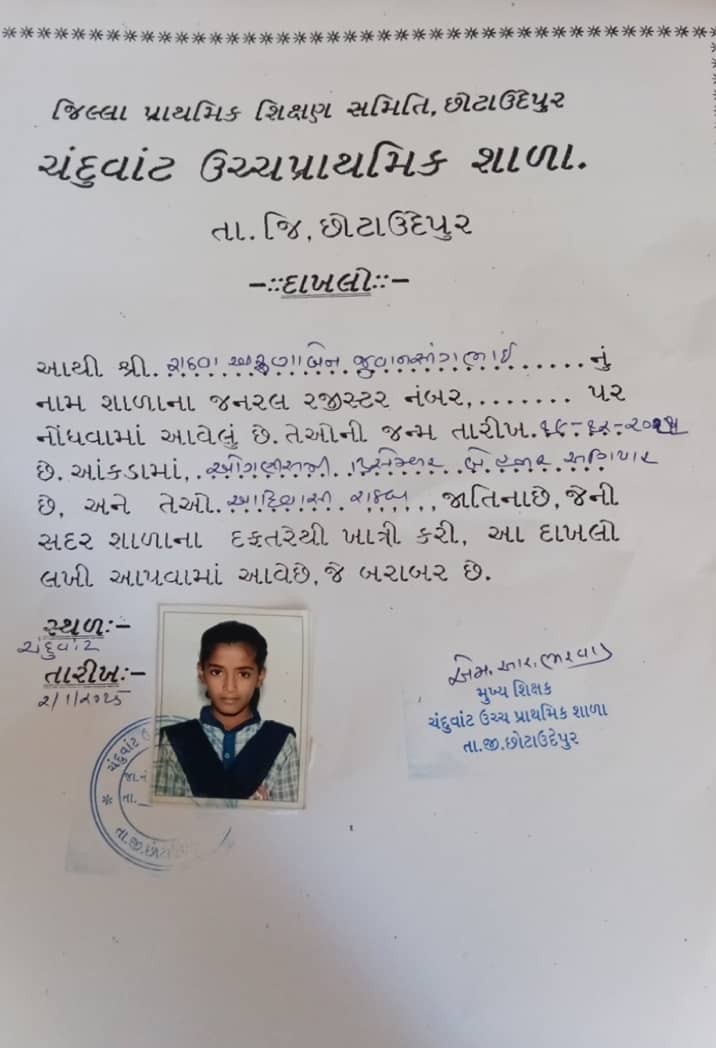 જિલ્લા પ્રાથમિક શિક્ષણ સમિતિ, છોટાઉદેપુર
ચંદુવાંટ ઉચ્ચપ્રાથમિક શાળા.
તા. જિ, છોટાઉદેપુર
-::દાખલો::-
આથી શ્રી. રાઠવા અરૂણાબેન જુવાનસીંગભાઈ ...... નું
નામ શાળાના જનરલ રજીસ્ટર નંબર,....... પર
નોંધવામાં આવેલું છે. તેઓની જન્મ તારીખ. ૧૯-૧૨-
છે. આંકડામાં, ઓગણીસમી ડિસેમ્બર બે હજાર અગિયાર
છે, અને તેઓ. આદિવાસી રાઠવા ...., જાતિનાછે, જેની
સદર શાળાના દફતરેથી ખાત્રી કરી, આ દાખલો
લખી આપવામાં આવેછે, જે બરાબર છે.
સ્થળ:-
ચંદુવાંટ
તારીખ:-
૨/૧/૨૦૨૫
એમ. આર. ભરવાડ
મુખ્ય શિક્ષક
ચંદુવાંટ ઉચ્ચ પ્રાથમિક શાળા
તા.જી.છોટાઉદેપુર
ચંદુવાંટ ઉ
જા.નં
તા.
તા.જી.છોટા